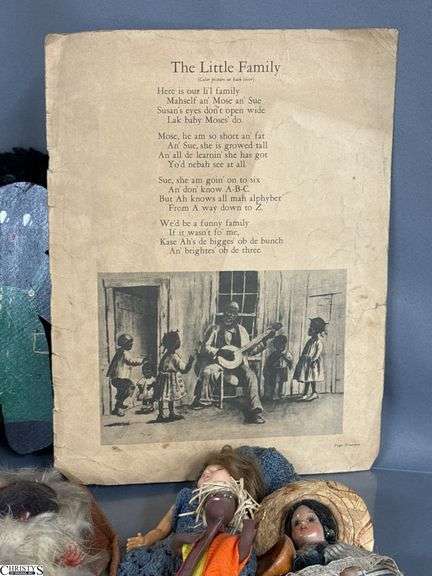 The Little Family
(Color picture on back cover)
Here is our li'l family
Mahself an' Mose an' Sue
Susan's eyes don't open wide
Lak baby Moses' do.
Mose, he am so short an' fat
An' Sue, she is growed tall
An all de learnin' she has got
Yo'd nebah see at all.
Sue, she am goin' on to six
An' don' know A-B-C
But Ah knows all mah alphyber
From A way down to Z.
We'd be a funny family
If it wasn't fo' me,
Kase Ah's de bigges' ob de bunch
An' brightes' ob de three.
Page
CHRISTY'S